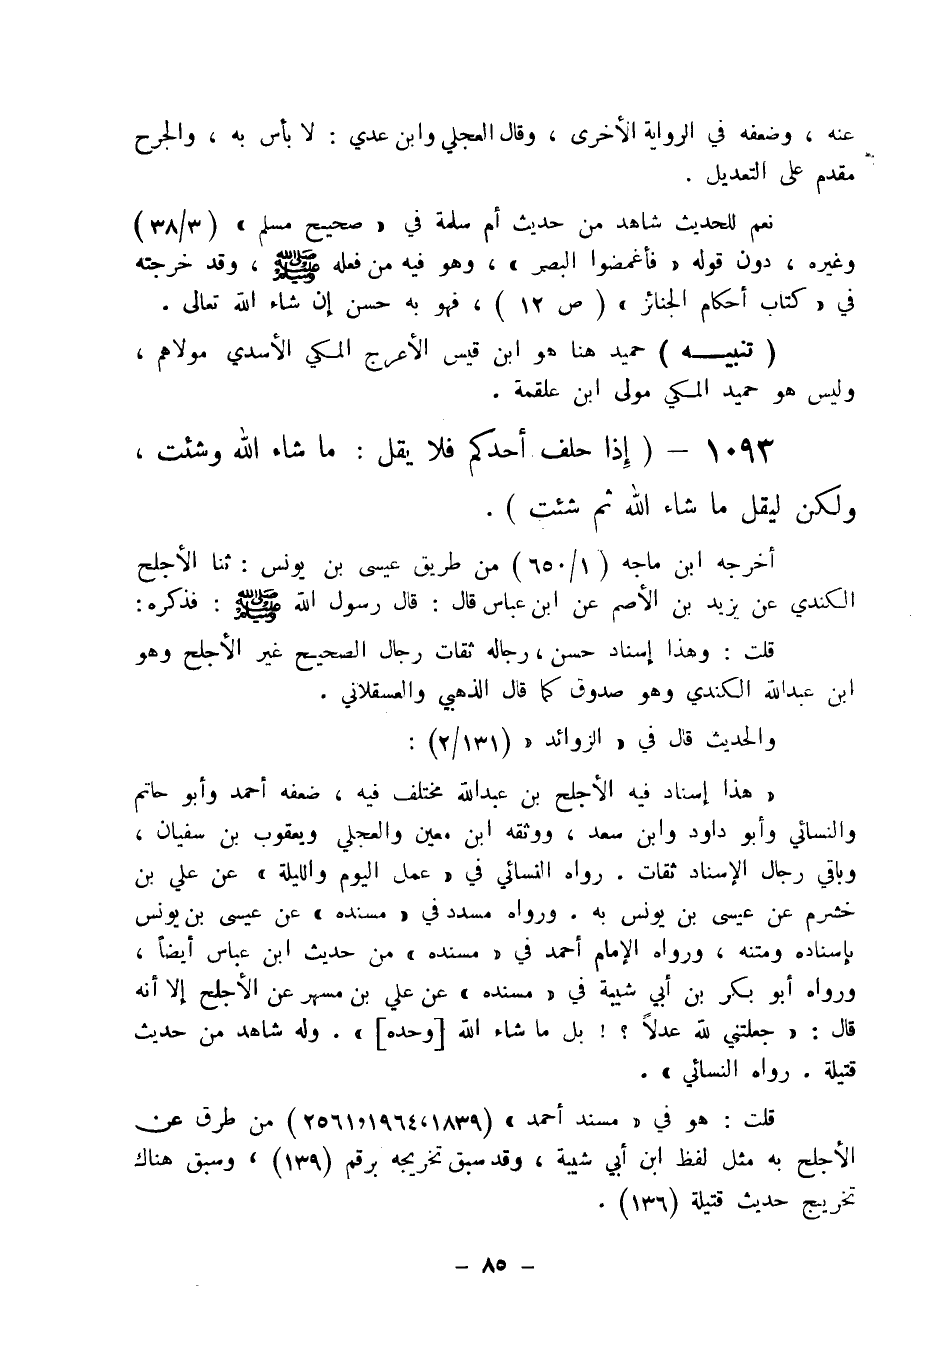 عنه ، وضعفه في الرواية الأخرى ، وقال العجلي وابن عدي : لا بأس به ، والجرح
مقدم على التعديل .
نعم للحديث شاهد من حديث أم سلمة في « صحيح مسلم » ( ٣٨/٣ )
وغيره ، دون قوله « فأغمضوا البصر » ، وهو فيه من فعله ﷺ ، وقد خرجته
في « كتاب أحكام الجنائز » ( ص ١٢ ) ، فهو به حسن إن شاء الله تعالى .
( تنبيــــه ) حميد هنا هو ابن قيس الأعرج المكي الأسدي مولاهم ،
وليس هو حميد المكي مولى ابن علقمة .
١٠٩٣ – ( إذا حلف أحدكم فلا يقل : ما شاء الله وشئت ،
ولكن ليقل ما شاء الله ثم شئت ) .
أخرجه ابن ماجه ( ٦٥٠/١ ) من طريق عيسى بن يونس : ثنا الأجلح
الكندي عن يزيد بن الأصم عن ابن عباس قال : قال رسول الله ﷺ : فذكره :
قلت : وهذا إسناد حسن ، رجاله ثقات رجال الصحيح غير الأجلح وهو
ابن عبدالله الكندي وهو صدوق كما قال الذهبي والعسقلاني .
والحديث قال في « الزوائد « (٢/١٣١) :
« هذا إسناد فيه الأجلح بن عبدالله مختلف فيه ، ضعفه أحمد وأبو حاتم
والنسائي وأبو داود وابن سعد ، ووثقه ابن معين والعجلي ويعقوب بن سفيان ،
وباقي رجال الإسناد ثقات . رواه النسائي في « عمل اليوم والليلة » عن علي بن
خشرم عن عيسى بن يونس به . ورواه مسدد في « مسنده » عن عيسى بن يونس
بإسناده ومتنه ، ورواه الإمام أحمد في « مسنده » من حديث ابن عباس أيضاً ،
ورواه أبو بكر بن أبي شيبة في « مسنده » عن علي بن مسهر عن الأجلح إلا أنه
قال : « جعلتني لله عدلاً ؟ ! بل ما شاء الله [وحده] » . وله شاهد من حديث
قتيلة . رواه النسائي » .
قلت : هو في « مسند أحمد » (١٨٣٩،١٩٦٤و٢٥٦١) من طرق عن
الأجلح به مثل لفظ ابن أبي شيبة ، وقد سبق تخريجه برقم (١٣٩) ، وسبق هناك
تخريج حديث قتيلة (١٣٦) .
– ٨٥ –